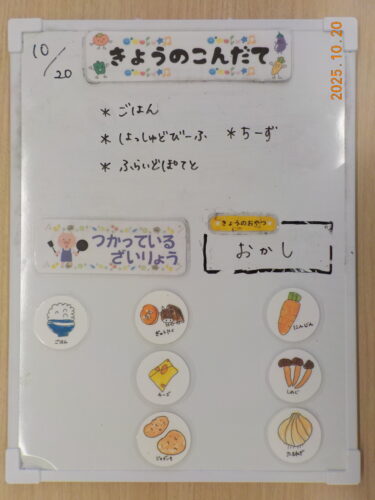 2025.10.20
10/20
きょうのこんだて
* ごはん
* はっしゅどびーふ * ちーず
* ふらいどぽてと
つかっている
ざいりょう
きょうのおやつ
おかし
ごはん
ぎゅうにく
にんじん
チーズ
しめじ
じゃがいも
たまねぎ